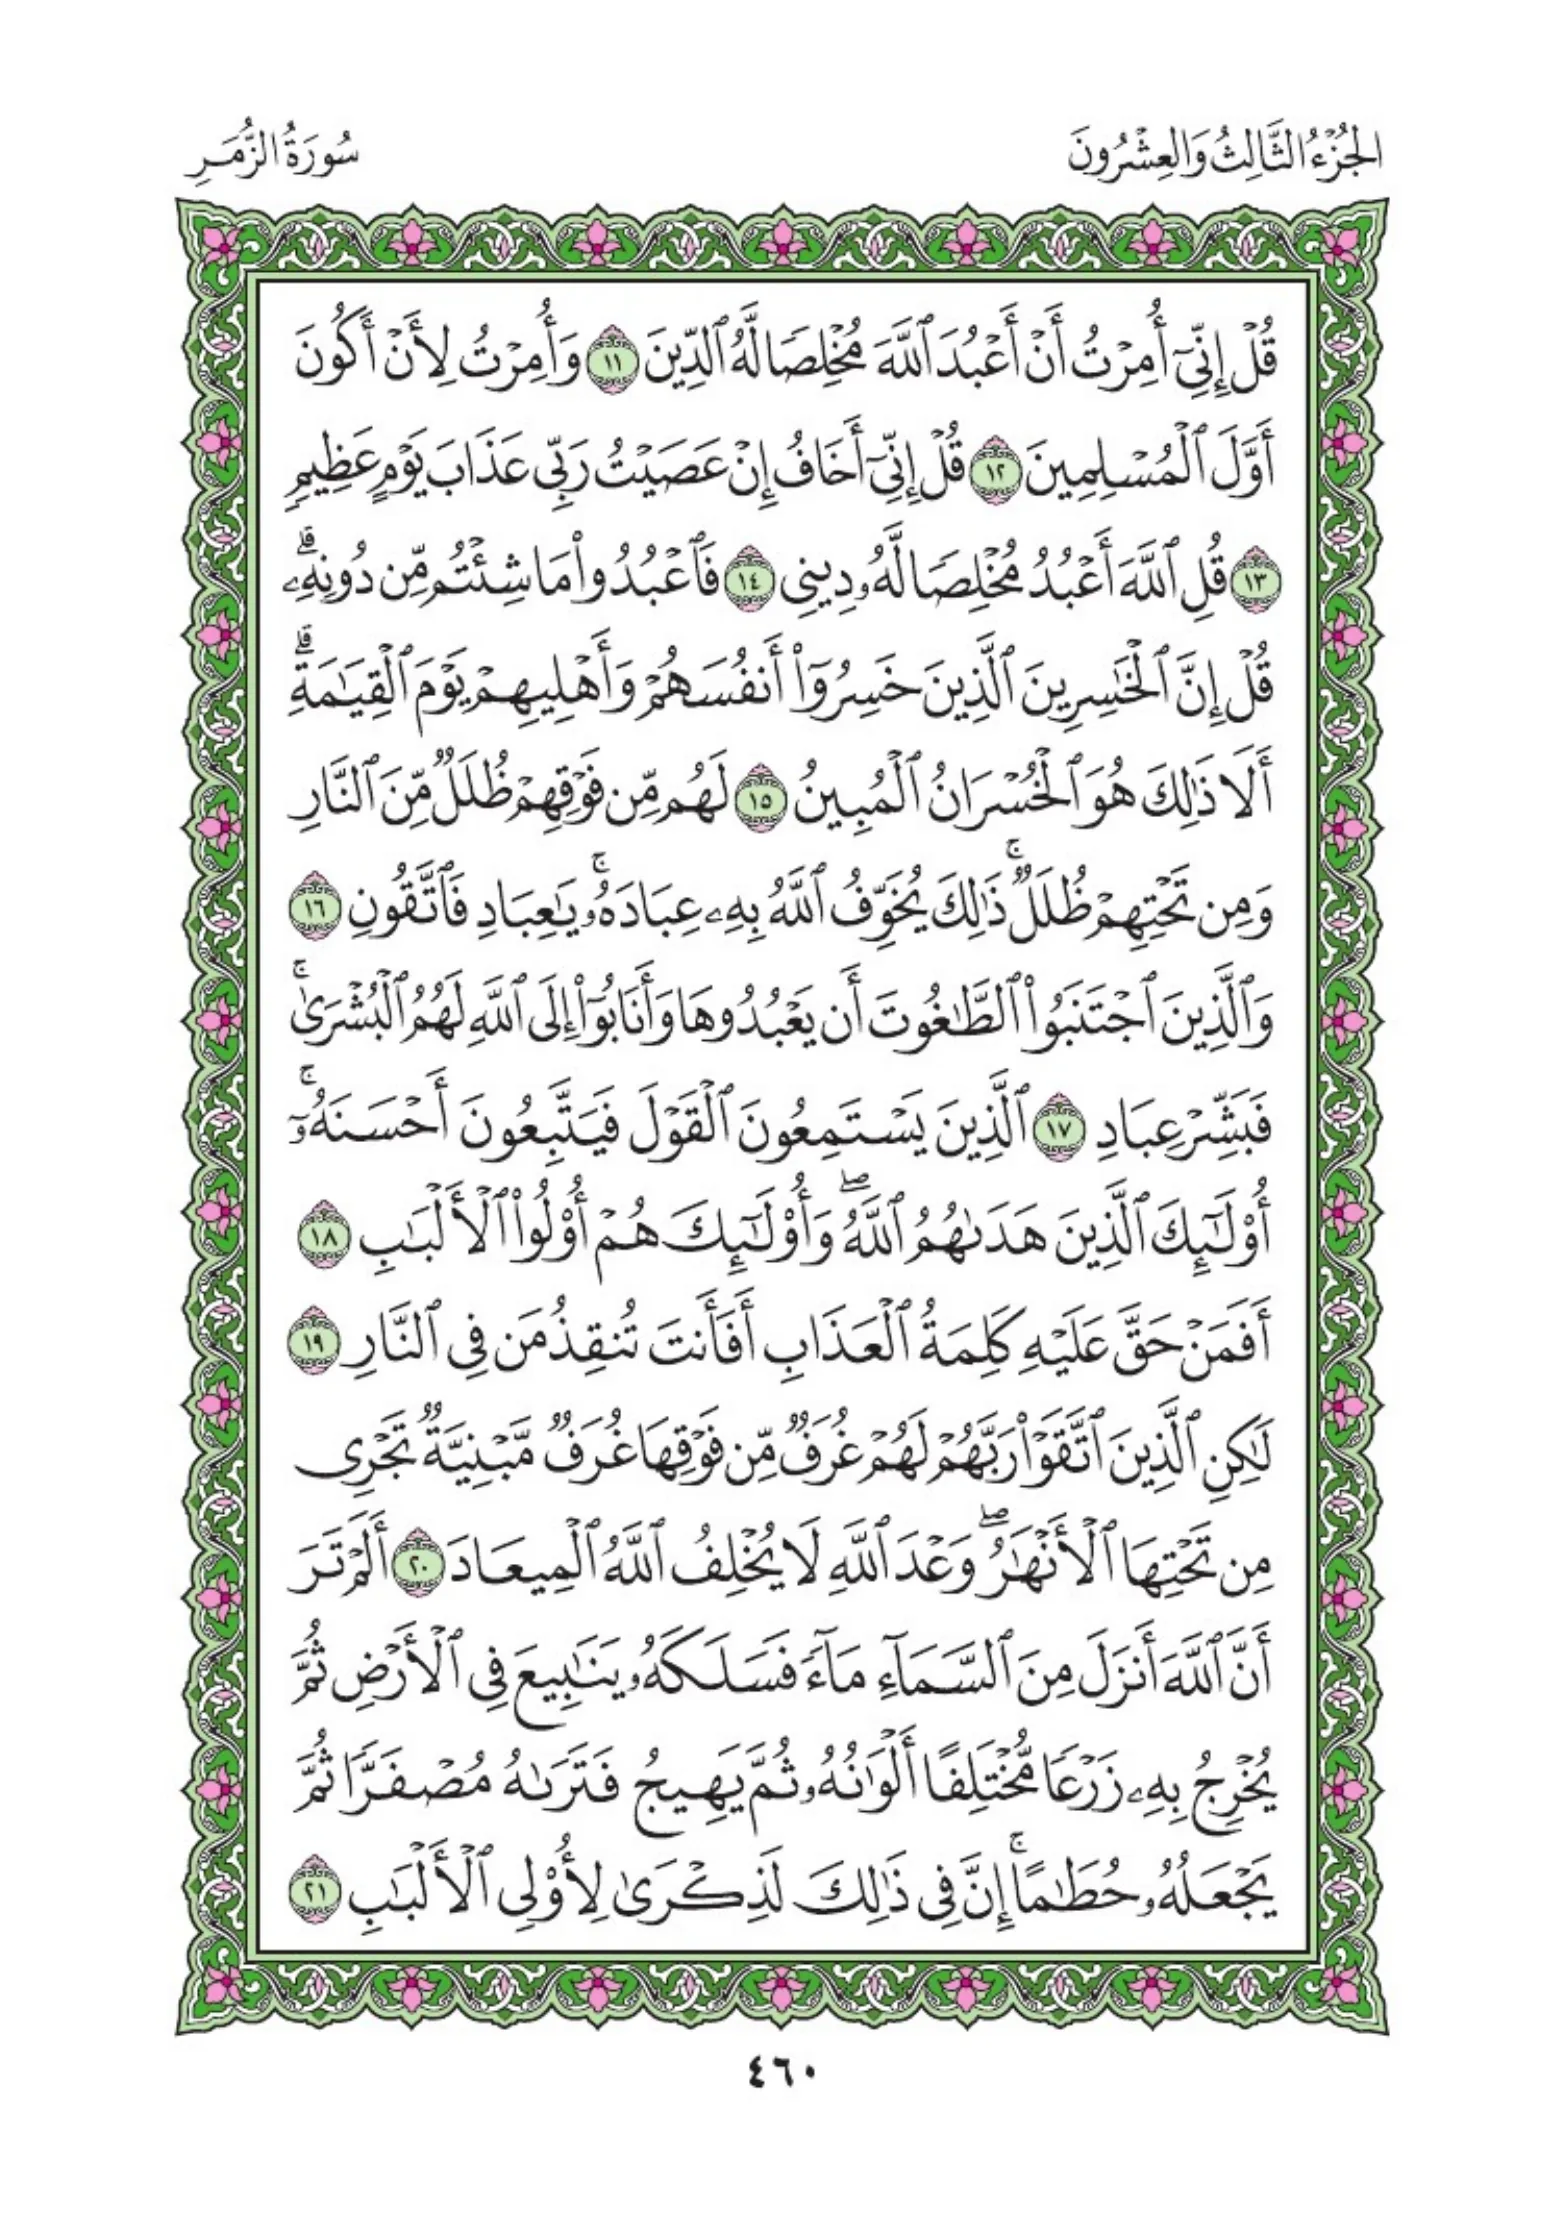 الجُزْءُ الثَّالِثُ وَالعِشْرُونَ
سُورَةُ الزُّمَرِ
قُلْ إِنِّيٓ أُمِرْتُ أَنْ أَعْبُدَ ٱللَّهَ مُخْلِصٗا لَّهُ ٱلدِّينَ ١١ وَأُمِرْتُ لِأَنْ أَكُونَ
أَوَّلَ ٱلْمُسْلِمِينَ ١٢ قُلْ إِنِّيٓ أَخَافُ إِنْ عَصَيْتُ رَبِّي عَذَابَ يَوْمٍ عَظِيمٖ
١٣ قُلِ ٱللَّهَ أَعْبُدُ مُخْلِصٗا لَّهُۥ دِينِي ١٤ فَٱعْبُدُواْ مَا شِئْتُم مِّن دُونِهِۦۗ
قُلْ إِنَّ ٱلْخَٰسِرِينَ ٱلَّذِينَ خَسِرُوٓاْ أَنفُسَهُمْ وَأَهْلِيهِمْ يَوْمَ ٱلْقِيَٰمَةِۗ
أَلَا ذَٰلِكَ هُوَ ٱلْخُسْرَانُ ٱلْمُبِينُ ١٥ لَهُم مِّن فَوْقِهِمْ ظُلَلٞ مِّنَ ٱلنَّارِ
وَمِن تَحْتِهِمْ ظُلَلٞۚ ذَٰلِكَ يُخَوِّفُ ٱللَّهُ بِهِۦ عِبَادَهُۥۚ يَٰعِبَادِ فَٱتَّقُونِ ١٦
وَٱلَّذِينَ ٱجْتَنَبُواْ ٱلطَّٰغُوتَ أَن يَعْبُدُوهَا وَأَنَابُوٓاْ إِلَى ٱللَّهِ لَهُمُ ٱلْبُشْرَىٰۚ
فَبَشِّرْ عِبَادِ ١٧ ٱلَّذِينَ يَسْتَمِعُونَ ٱلْقَوْلَ فَيَتَّبِعُونَ أَحْسَنَهُۥٓۚ
أُوْلَٰٓئِكَ ٱلَّذِينَ هَدَىٰهُمُ ٱللَّهُۖ وَأُوْلَٰٓئِكَ هُمْ أُوْلُواْ ٱلْأَلْبَٰبِ ١٨
أَفَمَنْ حَقَّ عَلَيْهِ كَلِمَةُ ٱلْعَذَابِ أَفَأَنتَ تُنقِذُ مَن فِي ٱلنَّارِ ١٩
لَٰكِنِ ٱلَّذِينَ ٱتَّقَوْاْ رَبَّهُمْ لَهُمْ غُرَفٞ مِّن فَوْقِهَا غُرَفٞ مَّبْنِيَّةٞ تَجْرِي
مِن تَحْتِهَا ٱلْأَنْهَٰرُۖ وَعْدَ ٱللَّهِ لَا يُخْلِفُ ٱللَّهُ ٱلْمِيعَادَ ٢٠ أَلَمْ تَرَ
أَنَّ ٱللَّهَ أَنزَلَ مِنَ ٱلسَّمَآءِ مَآءٗ فَسَلَكَهُۥ يَنَٰبِيعَ فِي ٱلْأَرْضِ ثُمَّ
يُخْرِجُ بِهِۦ زَرْعٗا مُّخْتَلِفًا أَلْوَٰنُهُۥ ثُمَّ يَهِيجُ فَتَرَىٰهُ مُصْفَرّٗا ثُمَّ
يَجْعَلُهُۥ حُطَٰمًاۚ إِنَّ فِي ذَٰلِكَ لَذِكْرَىٰ لِأُوْلِي ٱلْأَلْبَٰبِ ٢١
٤٦٠